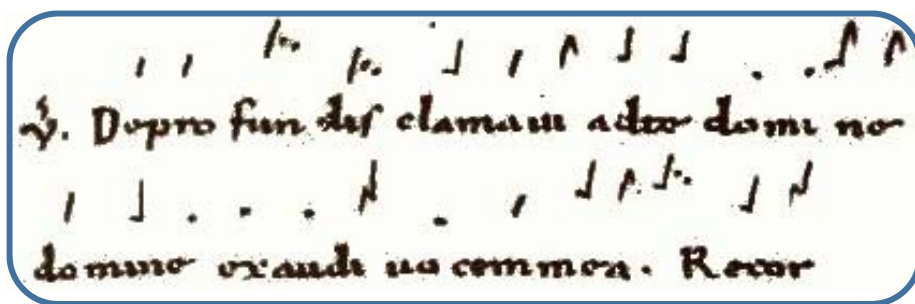 V. De pro fun dis clamaui ad te domi ne
domine exaudi uo cem mea. Recor